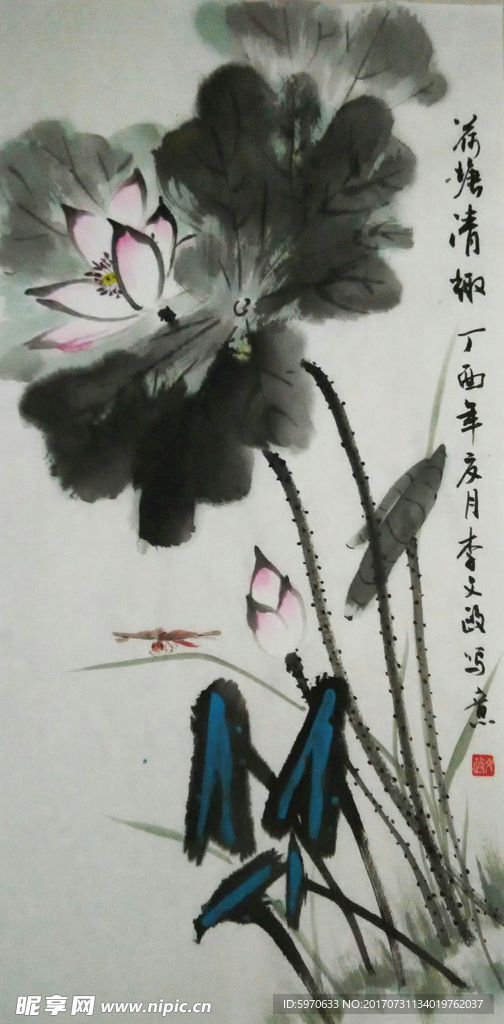 荷塘清趣丁酉年夏月李文政写意
昵享网 www.nipic.cn
ID:5970633 NO:20170731134019762037